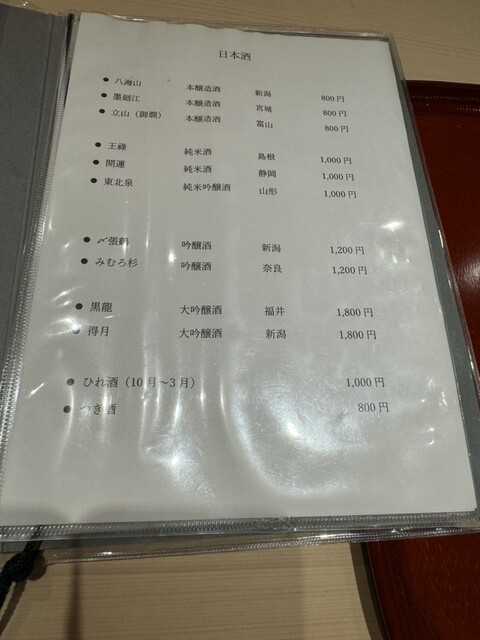 日本酒
● 八海山 本醸造酒 新潟 800円
● 墨廼江 本醸造酒 宮城 800円
● 立山（御燗） 本醸造酒 富山 800円
● 王祿 純米酒 島根 1,000円
● 開運 純米酒 静岡 1,000円
● 東北泉 純米吟醸酒 山形 1,000円
● 〆張鶴 吟醸酒 新潟 1,200円
● みむろ杉 吟醸酒 奈良 1,200円
● 黒龍 大吟醸酒 福井 1,800円
● 得月 大吟醸酒 新潟 1,800円
● ひれ酒（10月～3月） 1,000円
● つぎ酒 800円